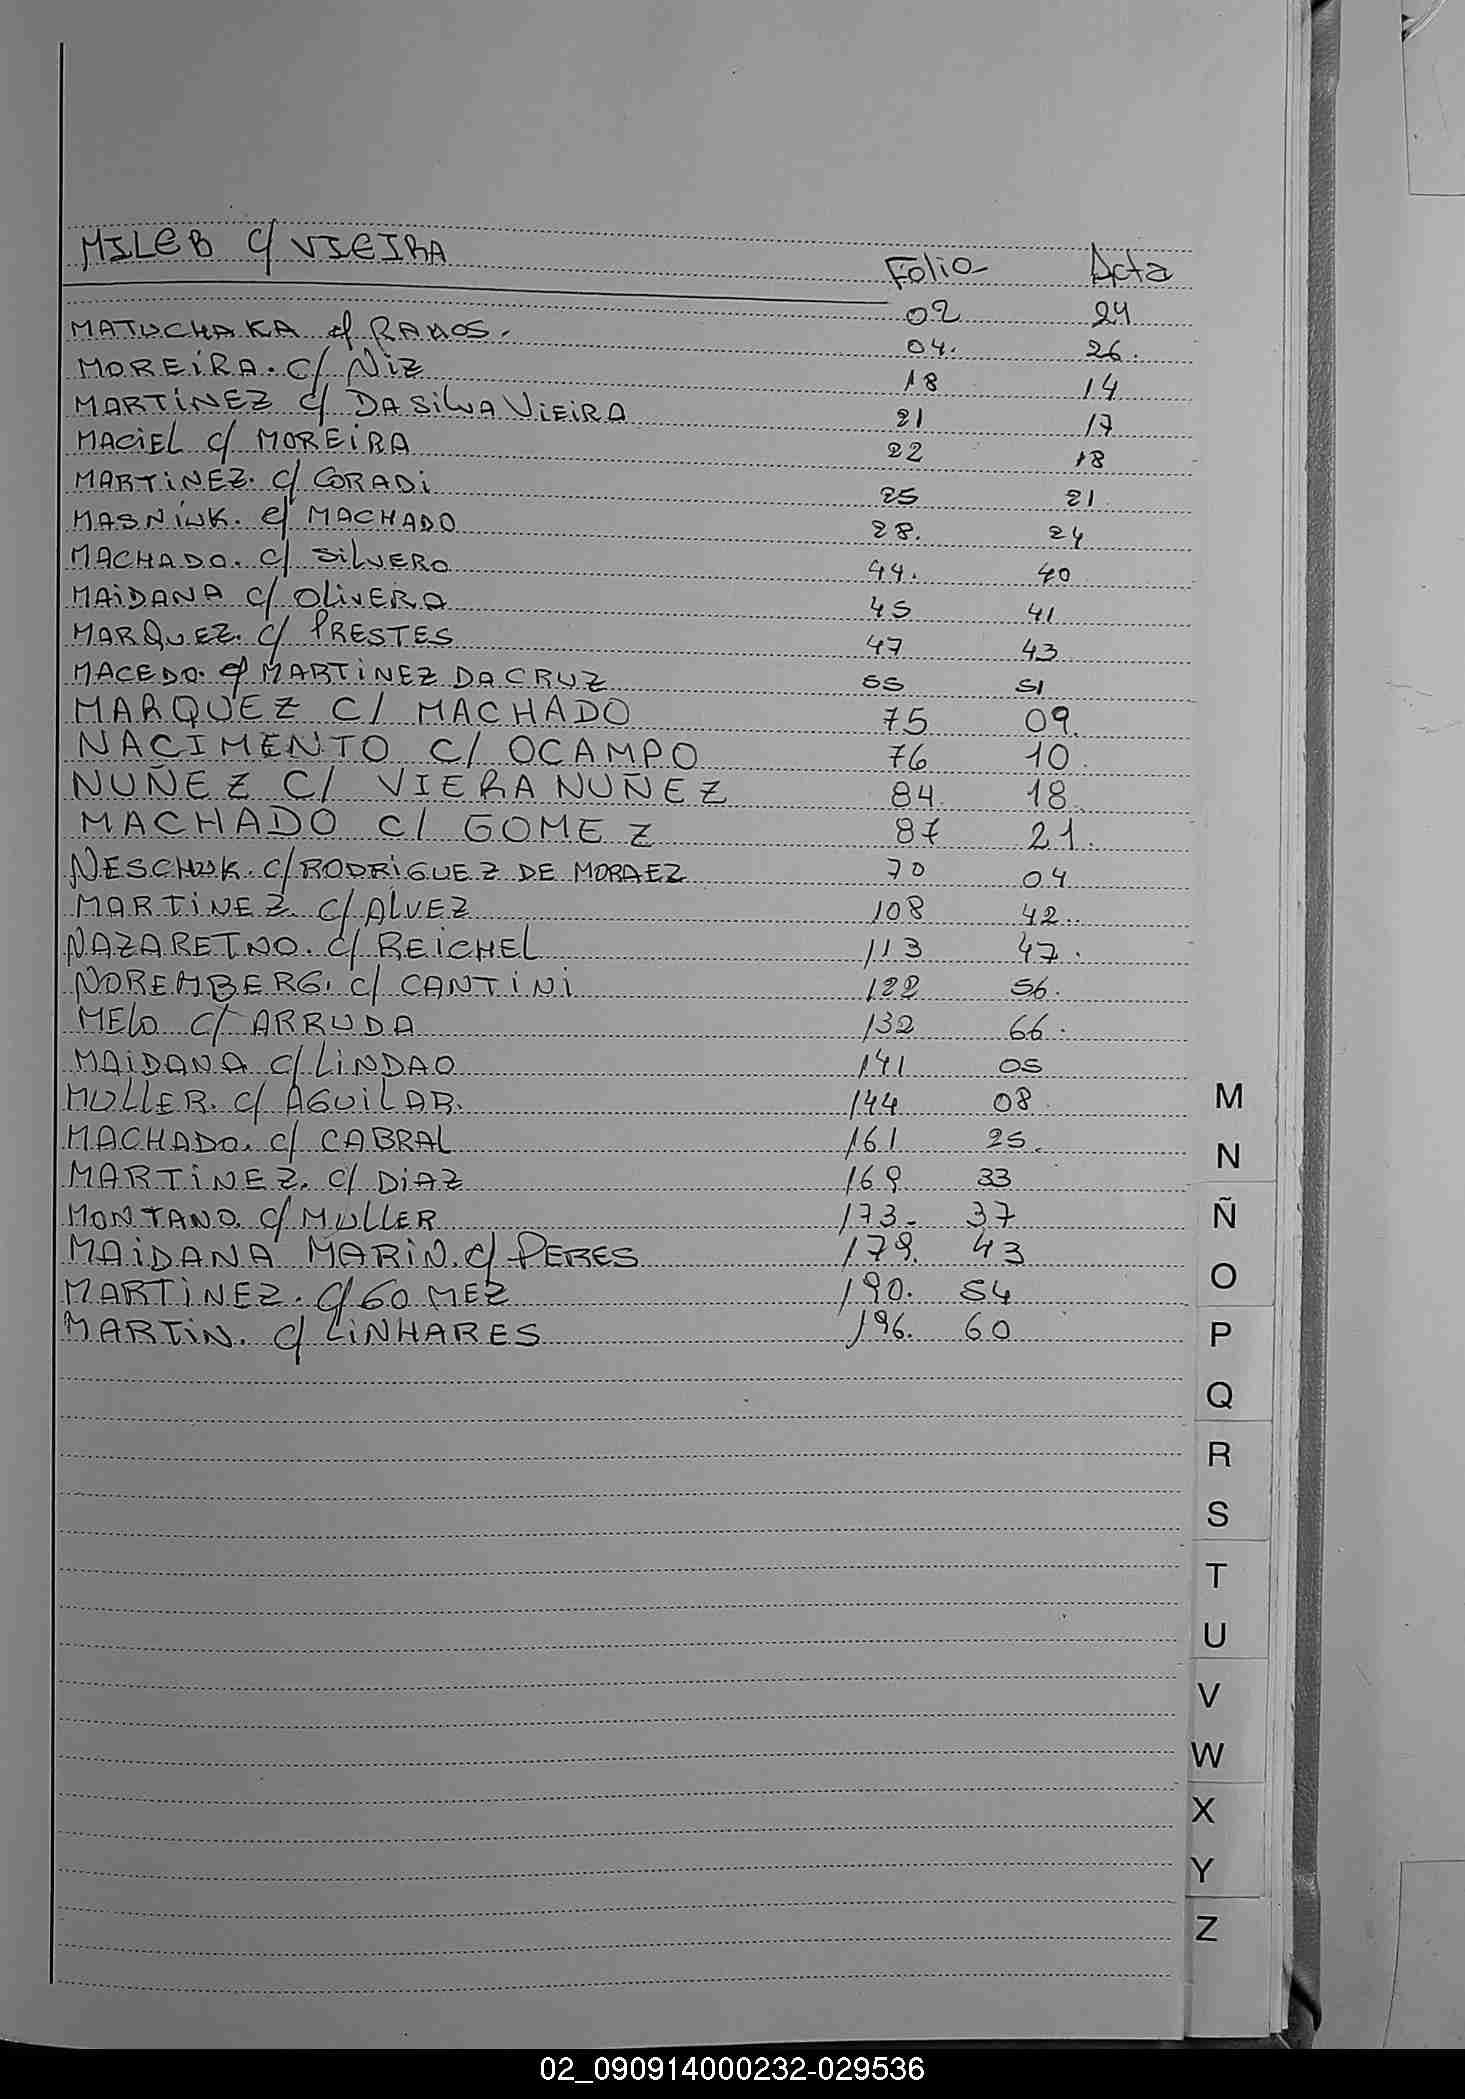 MILEB c/ VIEIRA Folio Acta
02 24
MATUCHAKA c/ RAMOS. 04. 26.
MOREIRA. C/ NIZ 18 14
MARTINEZ c/ DA SILVA VIEIRA 21 17
MACIEL c/ MOREIRA 22 18
MARTINEZ. c/ CORADI 25 21
MASNIUK. c/ MACHADO 28. 24
MACHADO. c/ SILVERO 44. 40
MAIDANA c/ OLIVERA 45 41
MARQUEZ. c/ PRESTES 47 43
MACEDO. c/ MARTINEZ DA CRUZ 55 51
MARQUEZ C/ MACHADO 75 09.
NACIMENTO C/ OCAMPO 76 10.
NUÑEZ C/ VIERA NUÑEZ 84. 18.
MACHADO C/ GOMEZ 87 21.
NESCHUK. c/ RODRIGUEZ DE MORAEZ 70 04
MARTINEZ. c/ ALVEZ 108 42..
NAZARETNO. c/ REICHEL 113 47.
NOREMBERG. c/ CANTINI 122 56.
MELO c/ ARRUDA 132 66.
MAIDANA c/ LINDAO 141 05
MULLER. c/ AGUILAR. 144 08.
MACHADO. c/ CABRAL 161 25.
MARTINEZ. c/ DIAZ 169 33
MONTANO. c/ MULLER 173. 37
MAIDANA MARIN. c/ PERES 179. 43
MARTINEZ. c/ GOMEZ 190. 54
MARTIN. c/ LINHARES 196. 60
M
N
Ñ
O
P
Q
R
S
T
U
V
W
X
Y
Z
02_090914000232-029536